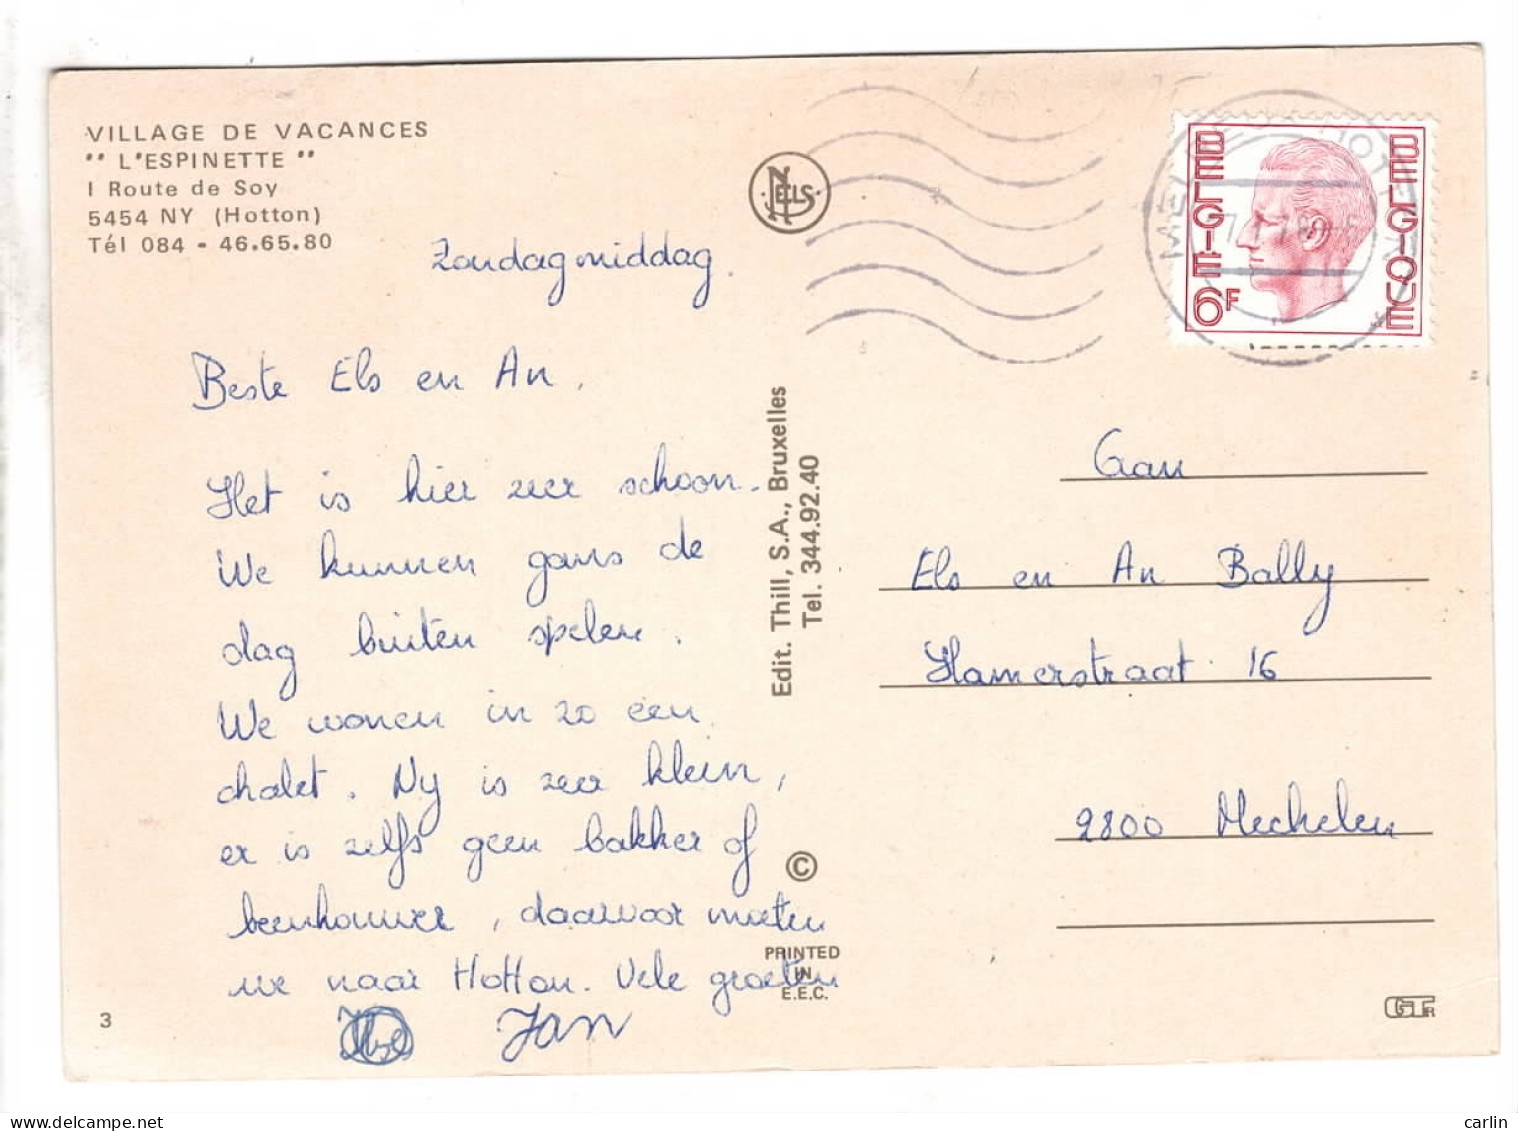 VILLAGE DE VACANCES
" L'ESPINETTE "
1 Route de Soy
5454 NY (Hotton)
Tél 084 - 46.65.80
Zondagmiddag.
Beste Els en An,
Het is hier zeer schoon.
We kunnen gans de
dag buiten spelen.
We wonen in zo een
chalet. Ny is zeer klein,
er is zelfs geen bakker of
beenhouwer, daarvoor moeten
we naar Hotton. Vele groeten
Ilse Jan
3
NELS
Edit. Thill, S.A., Bruxelles
Tel. 344.92.40
©
PRINTED
IN
E.E.C.
BELGIE 6F
BELGIQUE
Aan
Els en An Bally
Hamerstraat 16
2800 Mechelen